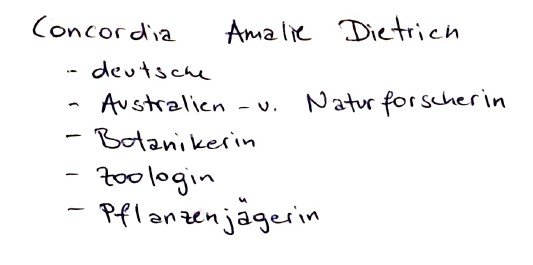 Concordia Amalie Dietrich
- deutsche
- Australien - u. Naturforscherin
- Botanikerin
- Zoologin
- Pflanzenjägerin